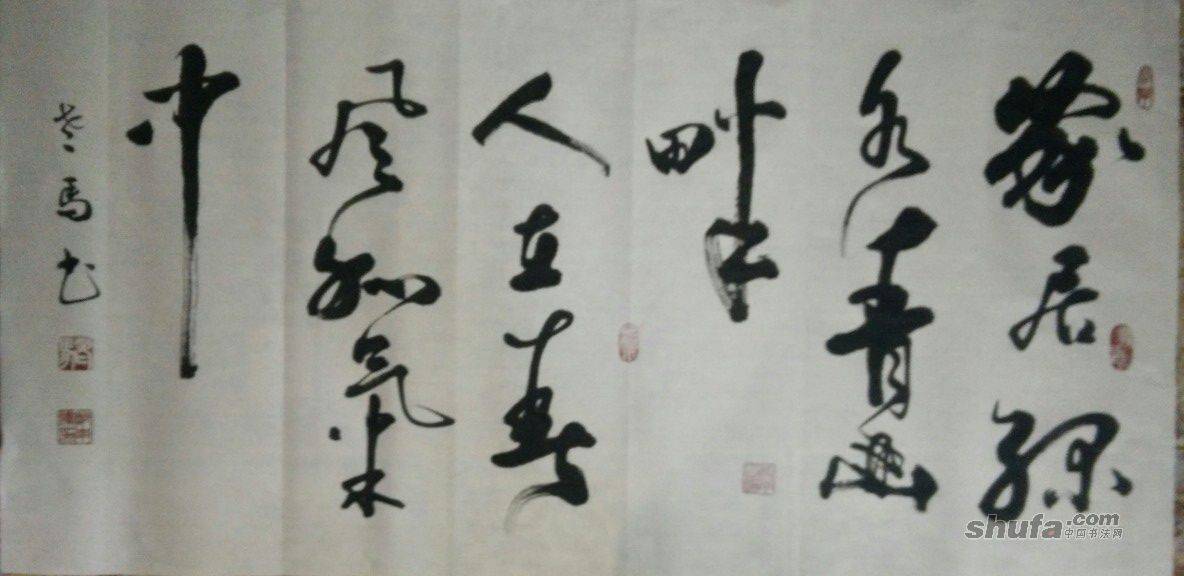 家居绿
水青山
畔
人在春
风和氣
中
老馬书
shufa.com
中国书法网